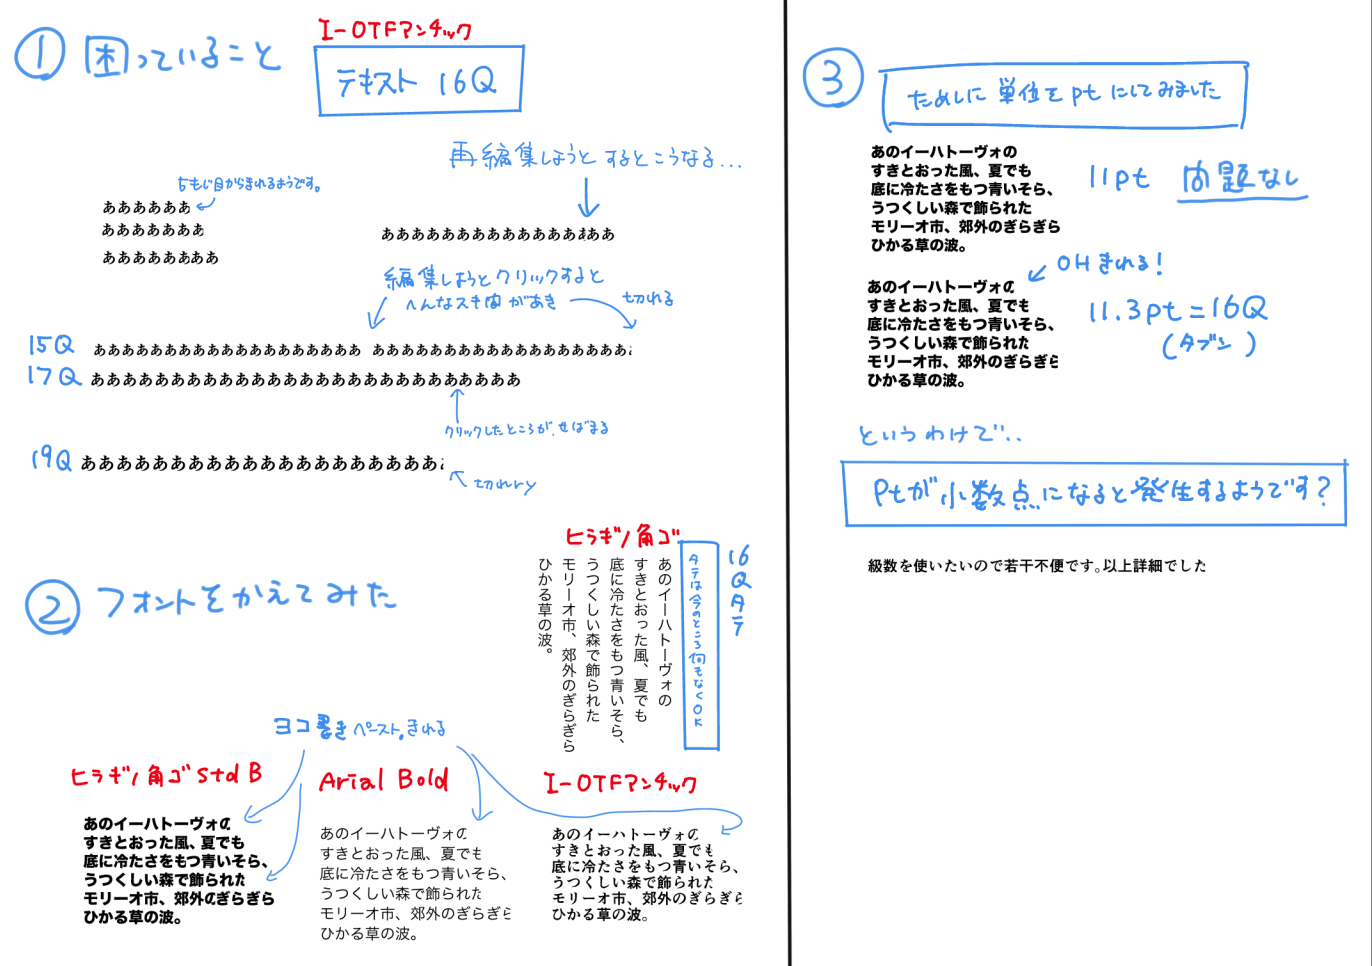 ① 困っていること
I-OTFアンチック
テキスト 16Q
再編集しようとするとこうなる...
5もじ目からきれるようです。
ああああああ
あああああああ
ああああああああ
ああああああああああああああああ
編集しようとクリックすると
へんなスキ間があき
切れる
15Q ああああああああああああああああああ あああああああああああああああああああ
17Q あああああああああああああああああああああああああああ
クリックしたところがせばまる
19Q ああああああああああああああああああああああ
切れry
② フォントをかえてみた
ヒラギノ角ゴ
16Qタテ
タテは今のところ何もなくOK
あのイーハトーヴォの
すきとおった風、夏でも
底に冷たさをもつ青いそら、
うつくしい森で飾られた
モリーオ市、郊外のぎらぎら
ひかる草の波。
ヨコ書きペースト。きれる
ヒラギノ角ゴ Std B
あのイーハトーヴォの
すきとおった風、夏でも
底に冷たさをもつ青いそら、
うつくしい森で飾られた
モリーオ市、郊外のぎらぎら
ひかる草の波。
Arial Bold
あのイーハトーヴォの
すきとおった風、夏でも
底に冷たさをもつ青いそら、
うつくしい森で飾られた
モリーオ市、郊外のぎらぎら
ひかる草の波。
I-OTFアンチック
あのイーハトーヴォの
すきとおった風、夏でも
底に冷たさをもつ青いそら、
うつくしい森で飾られた
モリーオ市、郊外のぎらぎら
ひかる草の波。
③ ためしに単位をptにしてみました
あのイーハトーヴォの
すきとおった風、夏でも
底に冷たさをもつ青いそら、
うつくしい森で飾られた
モリーオ市、郊外のぎらぎら
ひかる草の波。
11pt 問題なし
OHきれる!
あのイーハトーヴォの
すきとおった風、夏でも
底に冷たさをもつ青いそら、
うつくしい森で飾られた
モリーオ市、郊外のぎらぎら
ひかる草の波。
11.3pt=16Q
(タブン)
というわけで..
Ptが小数点になると発生するようです?
級数を使いたいので若干不便です。以上詳細でした